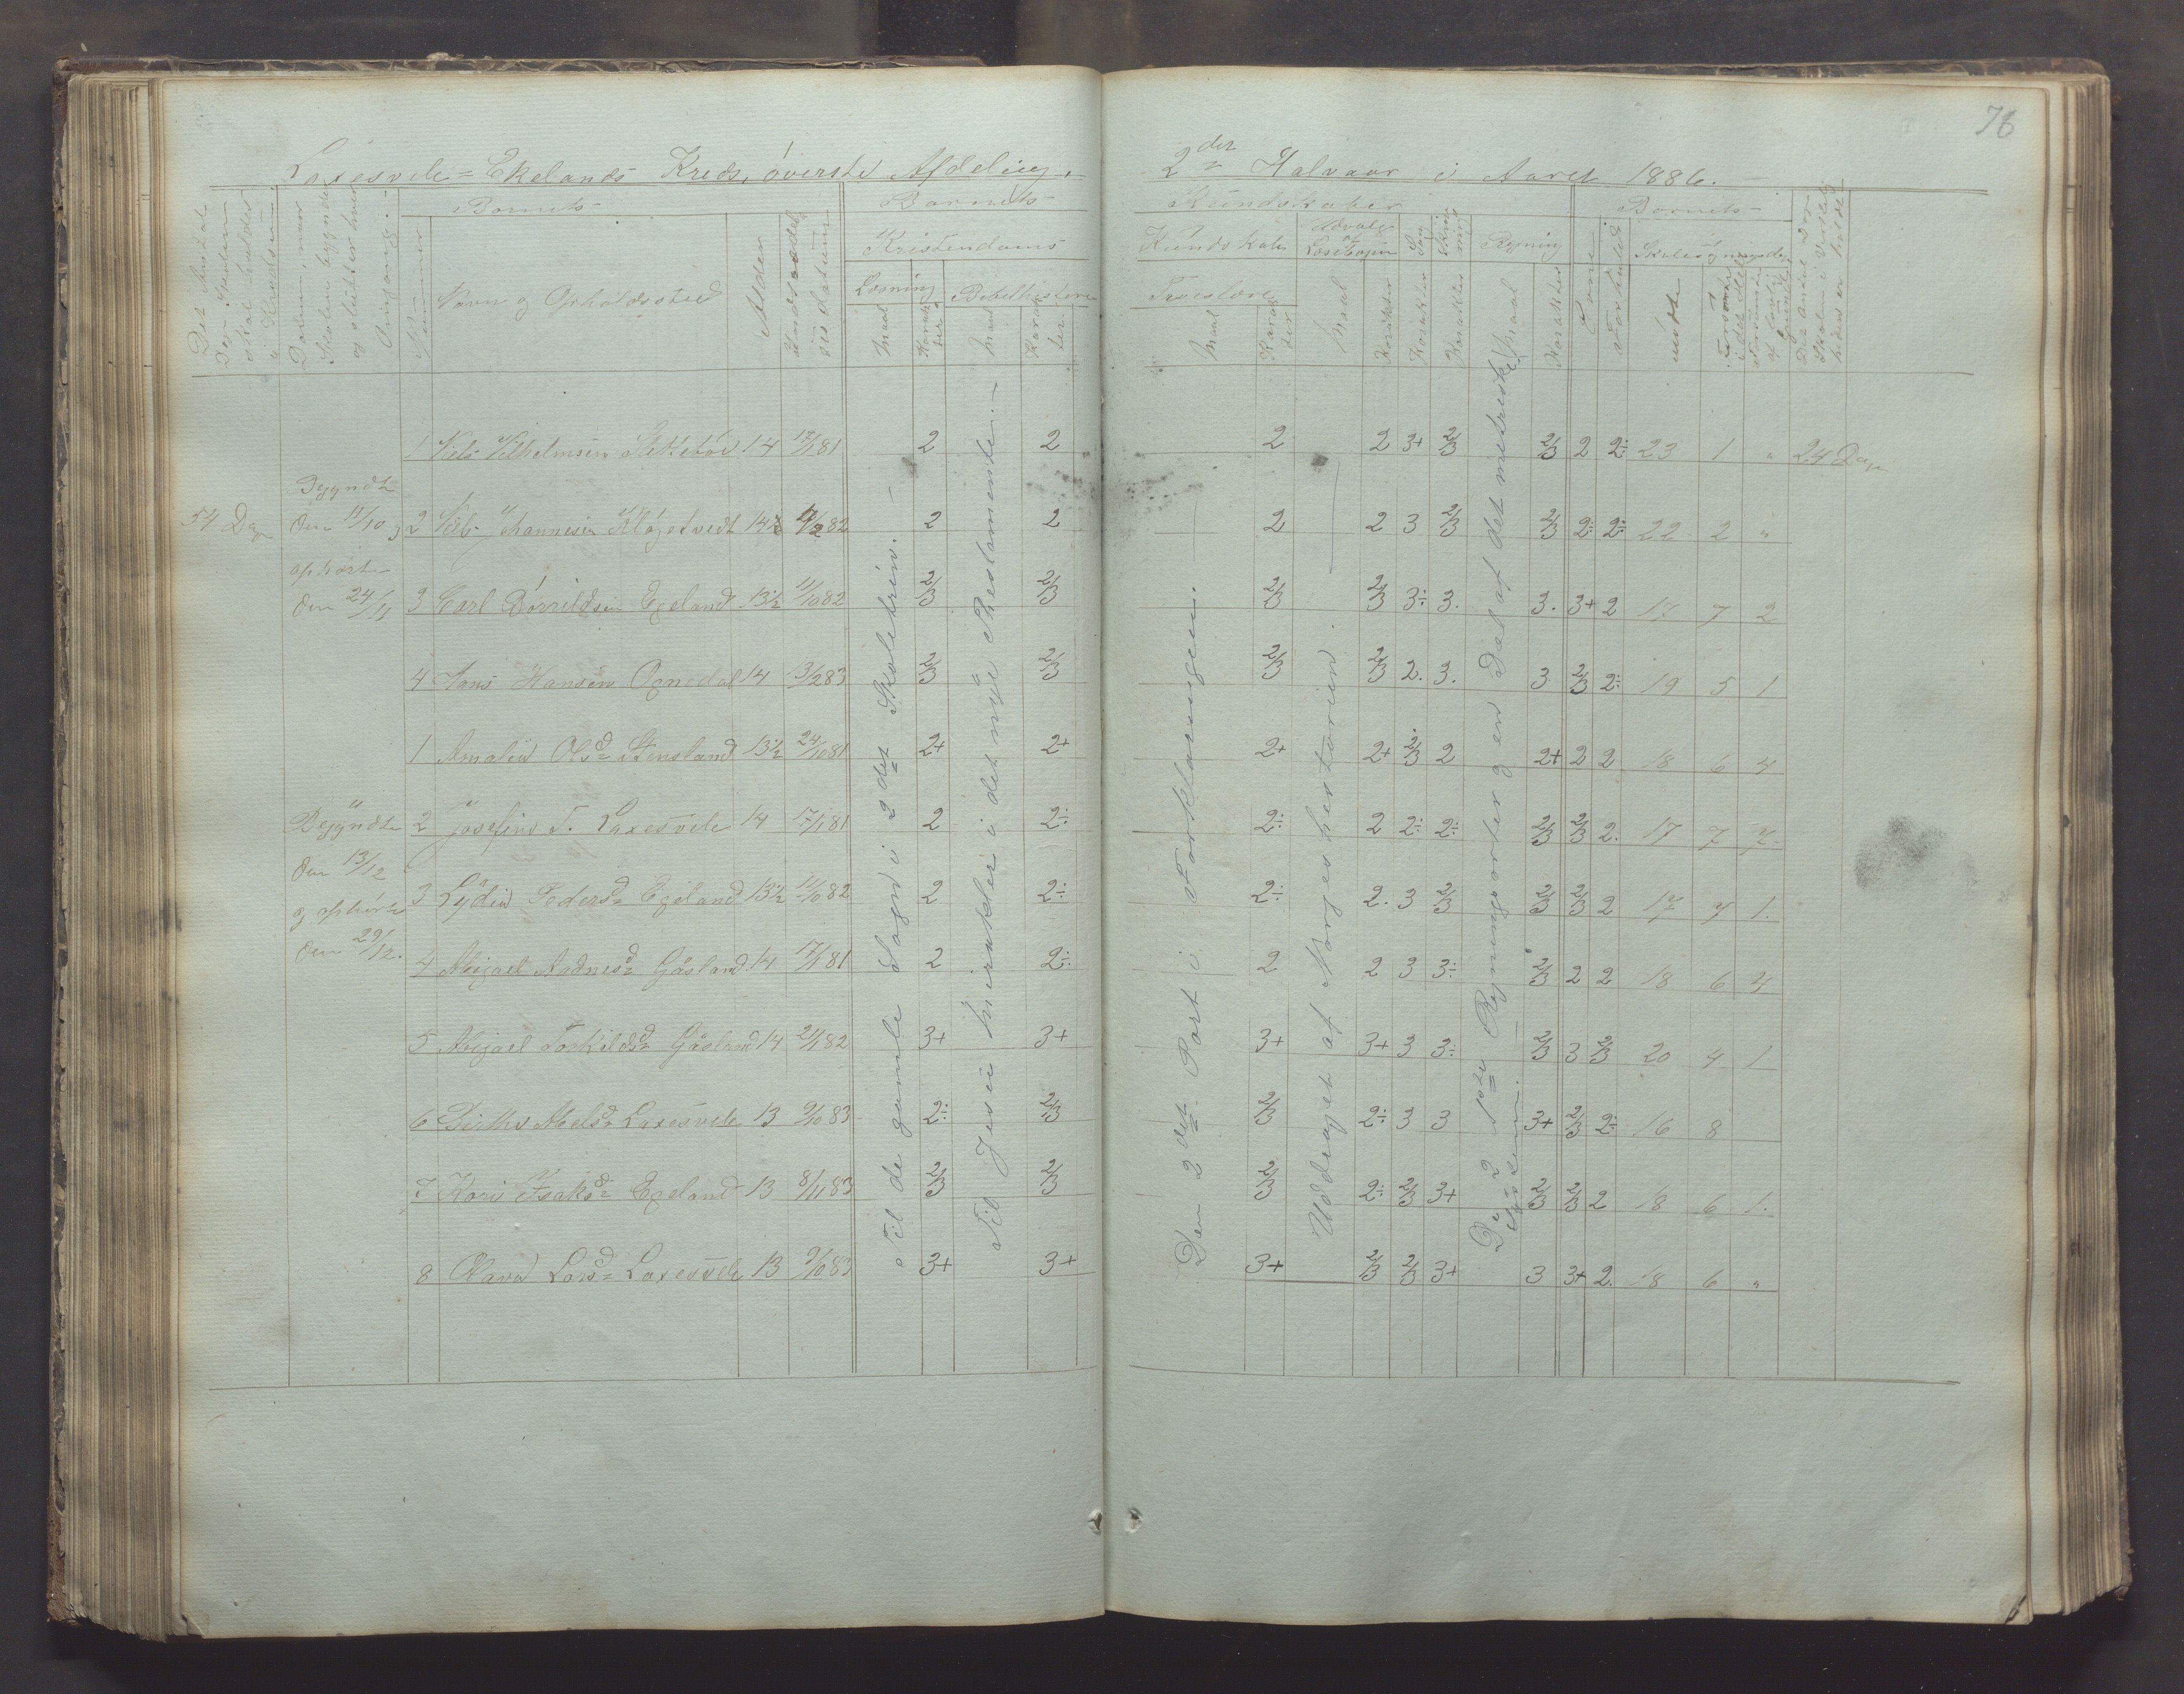 76
Laxesvele = Ekelands Kreds, øverste Afdeling.
2det Halvaar i Aaret 1886.
Det Antal Dage Skolen skal holdes i Kredsen
Datum, naar Skolen begynder og slutter hver Omgang.
Nummer
Barnets
Navn og Opholdssted
Alder
Indtrædelsesdatum
Barnets
Kristendoms
Læsning
Bibelhistorie
Maal
Karakter
Maal
Karakter
Kundskaber
Kundskab
Troeslære
Maal
Karakter
Udvalg af Læsebogen
Maal
Karakter
Sang
Karakter
Skrivning
Karakter
Regning
Maal
Karakter
Evne
Forhold
Barnets
Skolesøgning
mødte
54 Dage
Begyndte
den 11/10 og
ophørte
den 24/11
Begyndte
den 13/12
og ophørte
den 29/12.
1 Niels Vilhelmsen 14 17/1 81 2 2 2 2 3+ 2/3 2/3 2 2÷ 23 1 „ 24 Dage
2 Nils Johannesen 14½ 82 2 2 2 2 3 2/3 2/3 2÷ 2÷ 22 2 „
3 Carl Egeland 13½ 11/10 82 2/3 2/3 2/3 2/3 3÷ 3. 3. 3+ 2 17 7 2
4 Hans Hansen Ognedal 14 13/2 83 2/3 2/3 2/3 2/3 2. 3. 3 2/3 2÷ 19 5 1
1 Amalia Olsd. Stensland 13½ 24/10 81 2+ 2+ 2+ 2+ 2/3 2 2+ 2 2 18 6 4
2 Josefine T. Laxesvele 14 17/1 81 2 2÷ 2÷ 2 2÷ 2÷ 2/3 2/3 2. 17 7 7
3 Lydia Pedersd. Egeland 13½ 11/10 82 2 2÷ 2÷ 2. 3 2/3 2/3 2/3 2 17 7 1.
4 Abigael Aadnesd. Gåsland 14 17/1 81 2 2÷ 2 2 3 3÷ 2/3 2 2 18 6 4
5 Abigael Torkildsd. Gåsland 14 2/1 82 3+ 3+ 3+ 3+ 3 3÷ 2/3 3 2/3 20 4 1
6 Birthe Abelsd. Laxesvele 13 9/10 83 2÷ 2/3 2/3 2÷ 3 3 3+ 2/3 2÷ 16 8
7 Karis Isaksd. Egeland 13 8/11 83 2/3 2/3 2/3 2÷ 2/3 3+ 2/3 2/3 2 18 6 1.
8 Olava Larsd. Laxesvele 13 9/10 83 3+ 3+ 3+ 2/3 2/3 3+ 3 3+ 2. 18 6 „
Til de gamle Sagn i 2det Skoletrin.
Til Jesu mirakler i det nye Thestamente.
Den 2det Part i Forklaringen.
Uddraget af Norgeshistorien.
De 2 1ste Regningsarter og en Del af det metriske System.